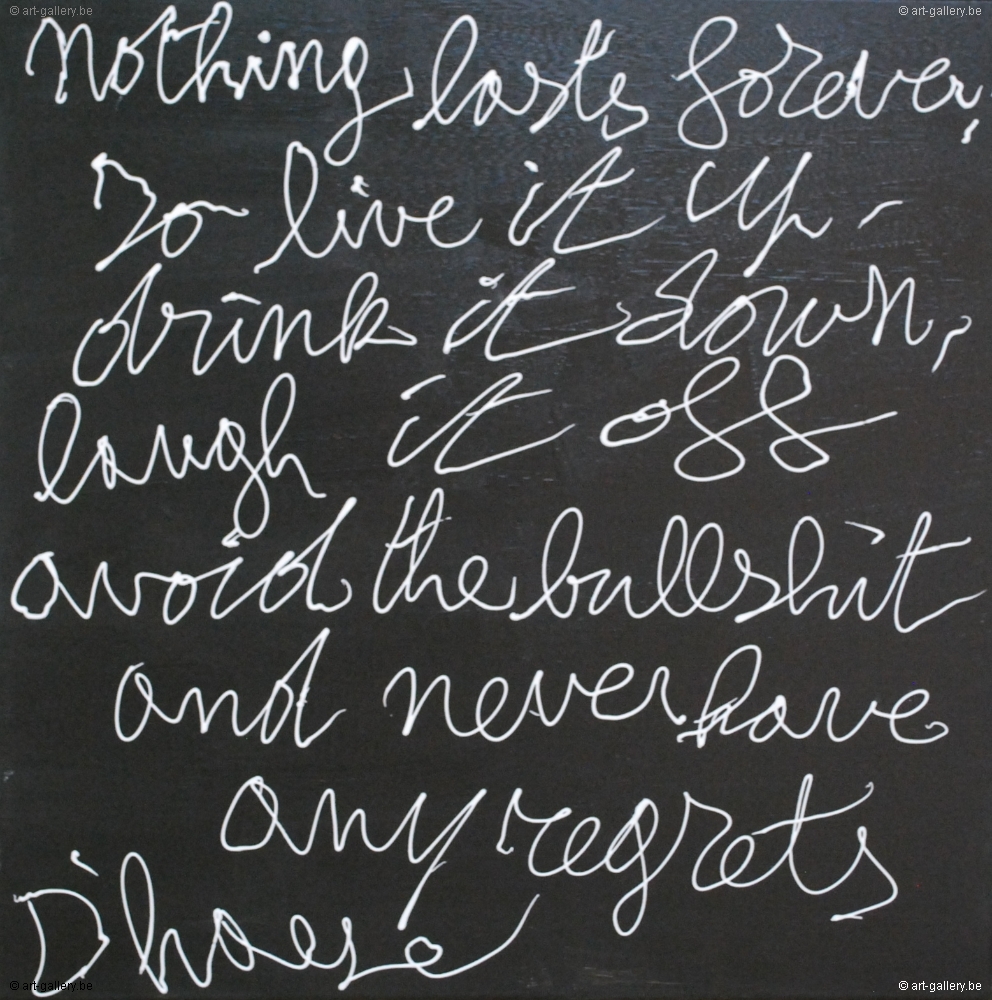 © art-gallery.be © art-gallery.be
nothing lasts forever,
So live it up -
drink it down,
laugh it off
avoid the bullshit
and never have
any regrets
D'haese
© art-gallery.be © art-gallery.be